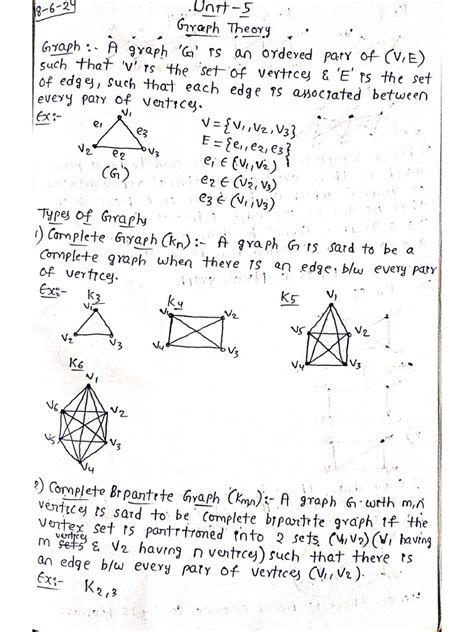 8-6-24
Unit-5
Graph Theory
Graph :- A graph 'G' is an ordered pair of (V,E)
such that 'V' is the set of vertices & 'E' is the set
of edges, such that each edge is associated between
every pair of vertices.
Ex:-
V1
e1 e3
V2 e2 V3
(G)
V = {V1, V2, V3}
E = {e1, e2, e3}
e1 ∈ (V1, V2)
e2 ∈ (V2, V3)
e3 ∈ (V1, V3)
Types of Graph
1) Complete Graph (Kn) :- A graph G is said to be a
complete graph when there is an edge b/w every pair
of vertices.
Ex:- K3 K4 K5
V1
V2 V3
V1 V2
V4 V3
V1
V5 V2
V4 V3
K6
V1
V6 V2
V5 V3
V4
2) Complete Bipartite Graph (Kmn) :- A graph G with m,n
vertices is said to be complete bipartite graph if the
vertex set is partitioned into 2 sets, (V1, V2) (V1 having
m vertices & V2 having n vertices) such that there is
an edge b/w every pair of vertices (V1, V2).
Ex:- K2,3